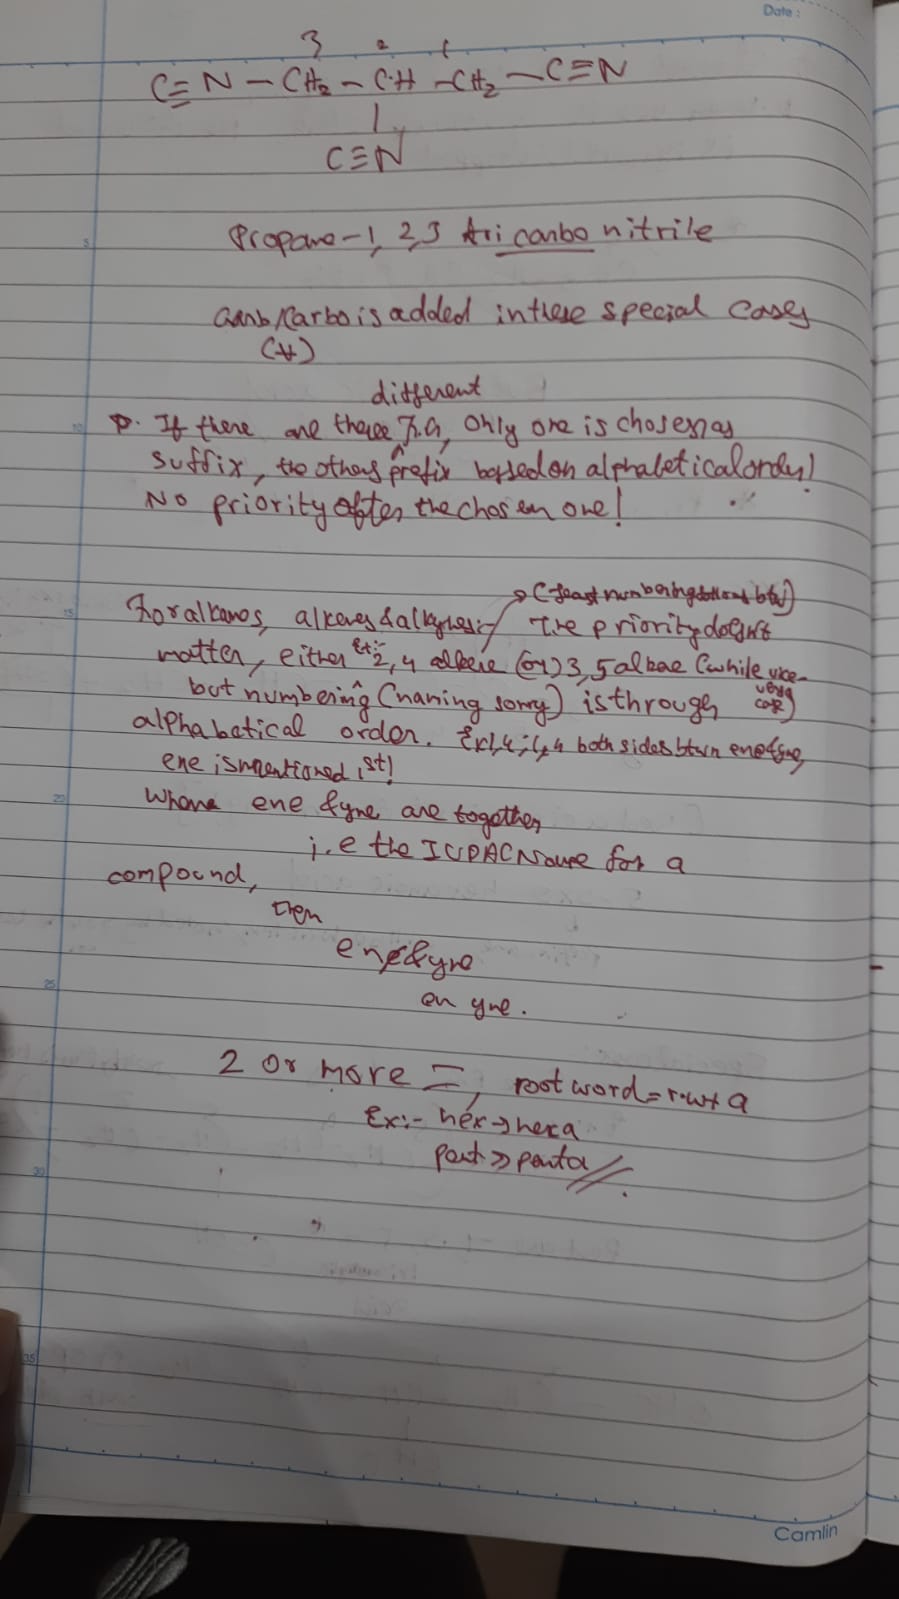 Date :
3 2 1
C≡N – CH₂ – CH – CH₂ – C≡N
|
C≡N
Propane – 1, 2, 3 tri carbo nitrile
Carb/Carbo is added in these special cases
different
If there are three f.g, only one is chosen as
suffix, the others prefix based on alphabetical order!
No priority after the chosen one!
(least numbering
For alkanes, alkenes & alkynes:- The priority doesn't
matter, either 2, 4 (or) 3, 5 (while vice-
but numbering (naming sorry) is through versa
alphabetical order. Ex 1,4 ; 1,4 both sides btwn ene & yne,
ene is mentioned 1st!
Where ene & yne are together,
i.e the IUPAC Name for a
compound,
then
ene & yne
en yne.
2 or more = , root word = r.w + a
Ex:- hex → hexa
pent → penta
5
10
15
20
25
30
35
Camlin